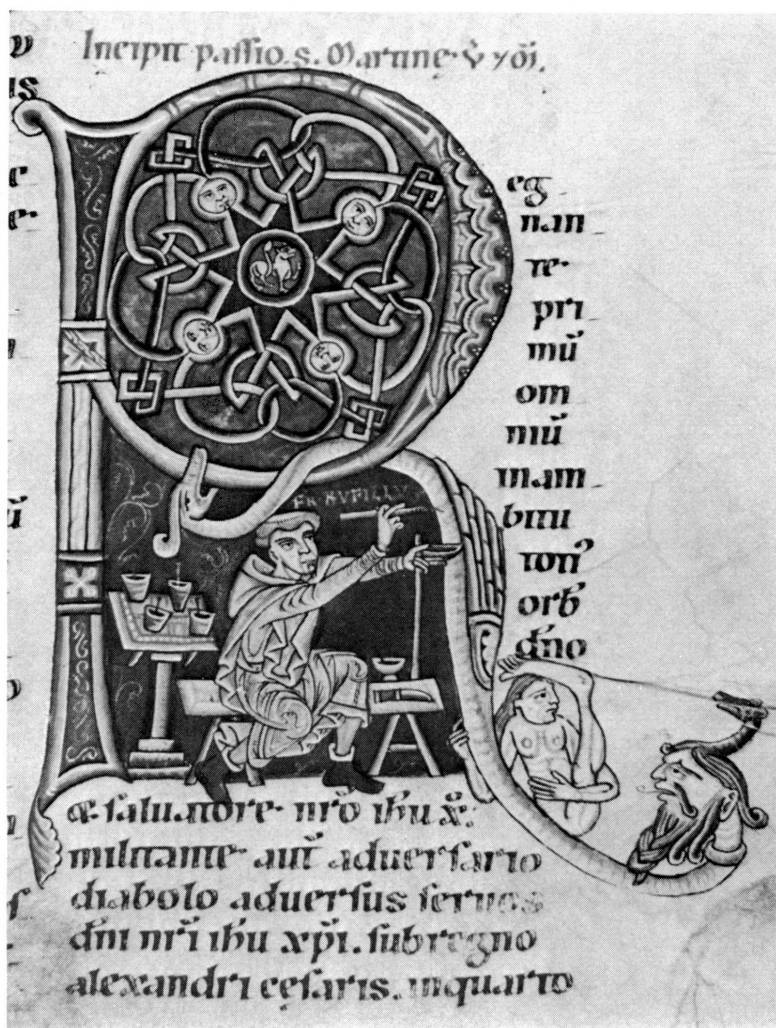 Incipit passio. s. Martine. v̄ & m̄.
R
eg
nan
te.
pri
mū
om
niū
inam
bitu
toti᾽
orb
dn̄o
FR RVFILLV
& saluatore. nr̄o ih̄u xp̄.
militante aut̄ aduersario
diabolo aduersus seruos
dn̄i nr̄i ih̄u xp̄i. sub regno
alexandri cęsaris. inquarto